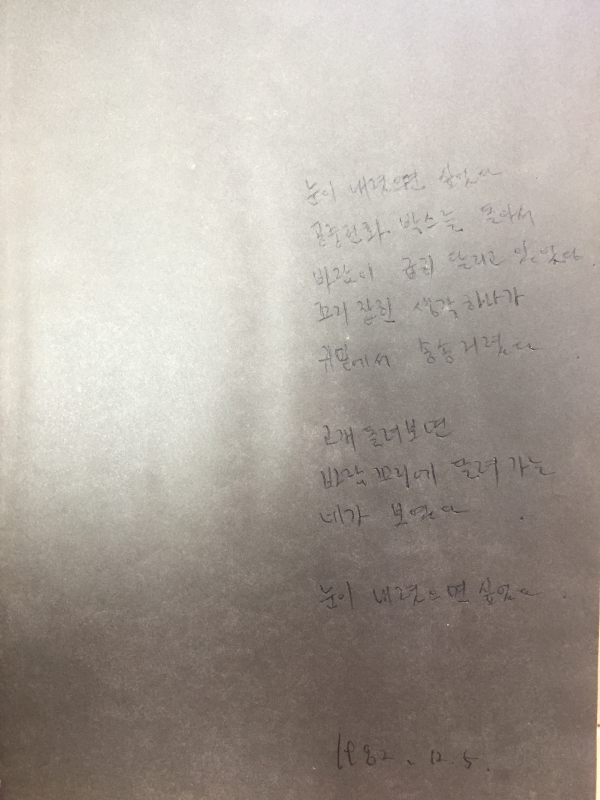 눈이 내렸으면 싶었다
공중전화 박스를 돌아서
바람이 급히 달리고 있었다.
꼬리 잡힌 생각 하나가
귀밑에서 송송거렸다.
고개 돌려보면
바람 꼬리에 딸려 가는
네가 보였다.
눈이 내렸으면 싶었다.
1982. 12. 5.